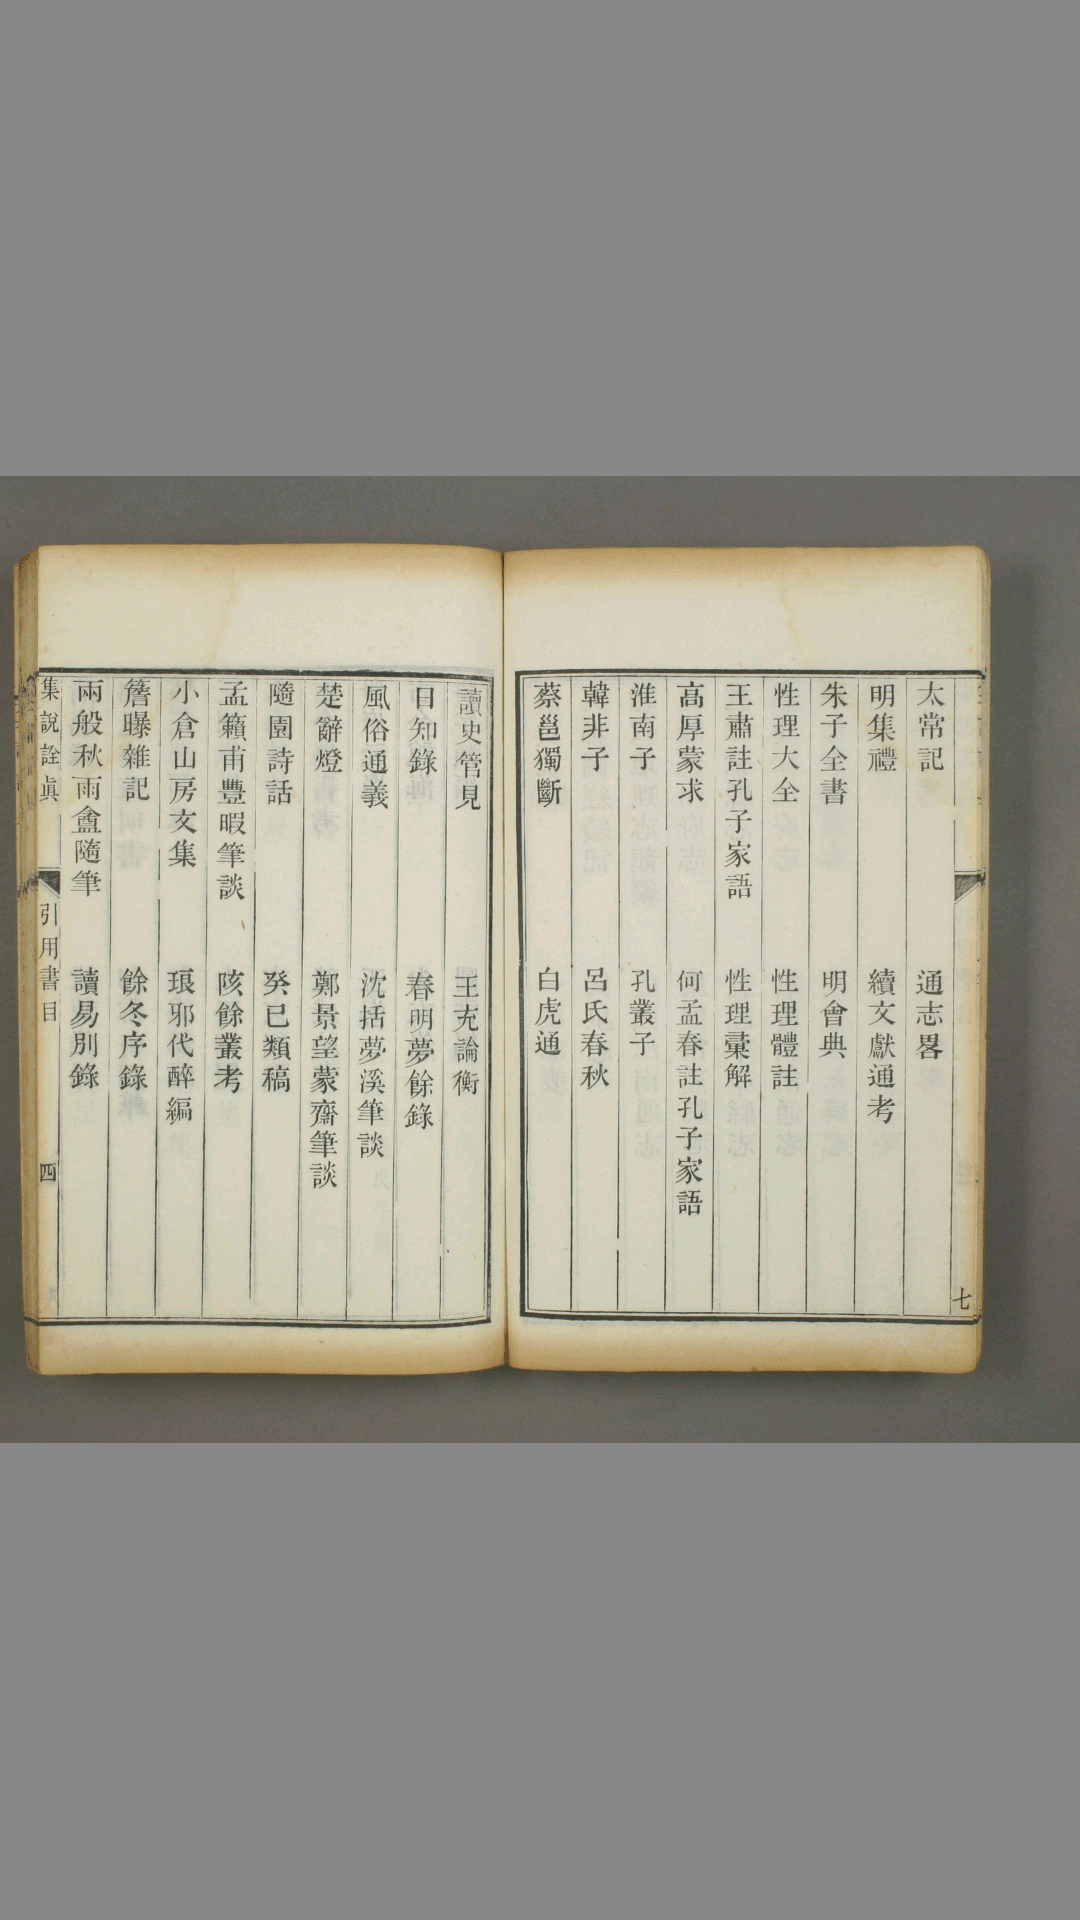 太常記　通志畧
明集禮　續文獻通考
朱子全書　明會典
性理大全　性理體註
王肅註孔子家語　性理彚解
高厚蒙求　何孟春註孔子家語
淮南子　孔叢子
韓非子　呂氏春秋
蔡邕獨斷　白虎通
七
讀史管見　王充論衡
日知錄　春明夢餘錄
風俗通義　沈括夢溪筆談
楚辭燈　鄭景望蒙齋筆談
隨園詩話　癸巳類稿
孟籟甫豐暇筆談　陔餘叢考
小倉山房文集　琅邪代醉編
簷曝雜記　餘冬序錄
兩般秋雨盦隨筆　讀易別錄
集說詮眞　引用書目　四